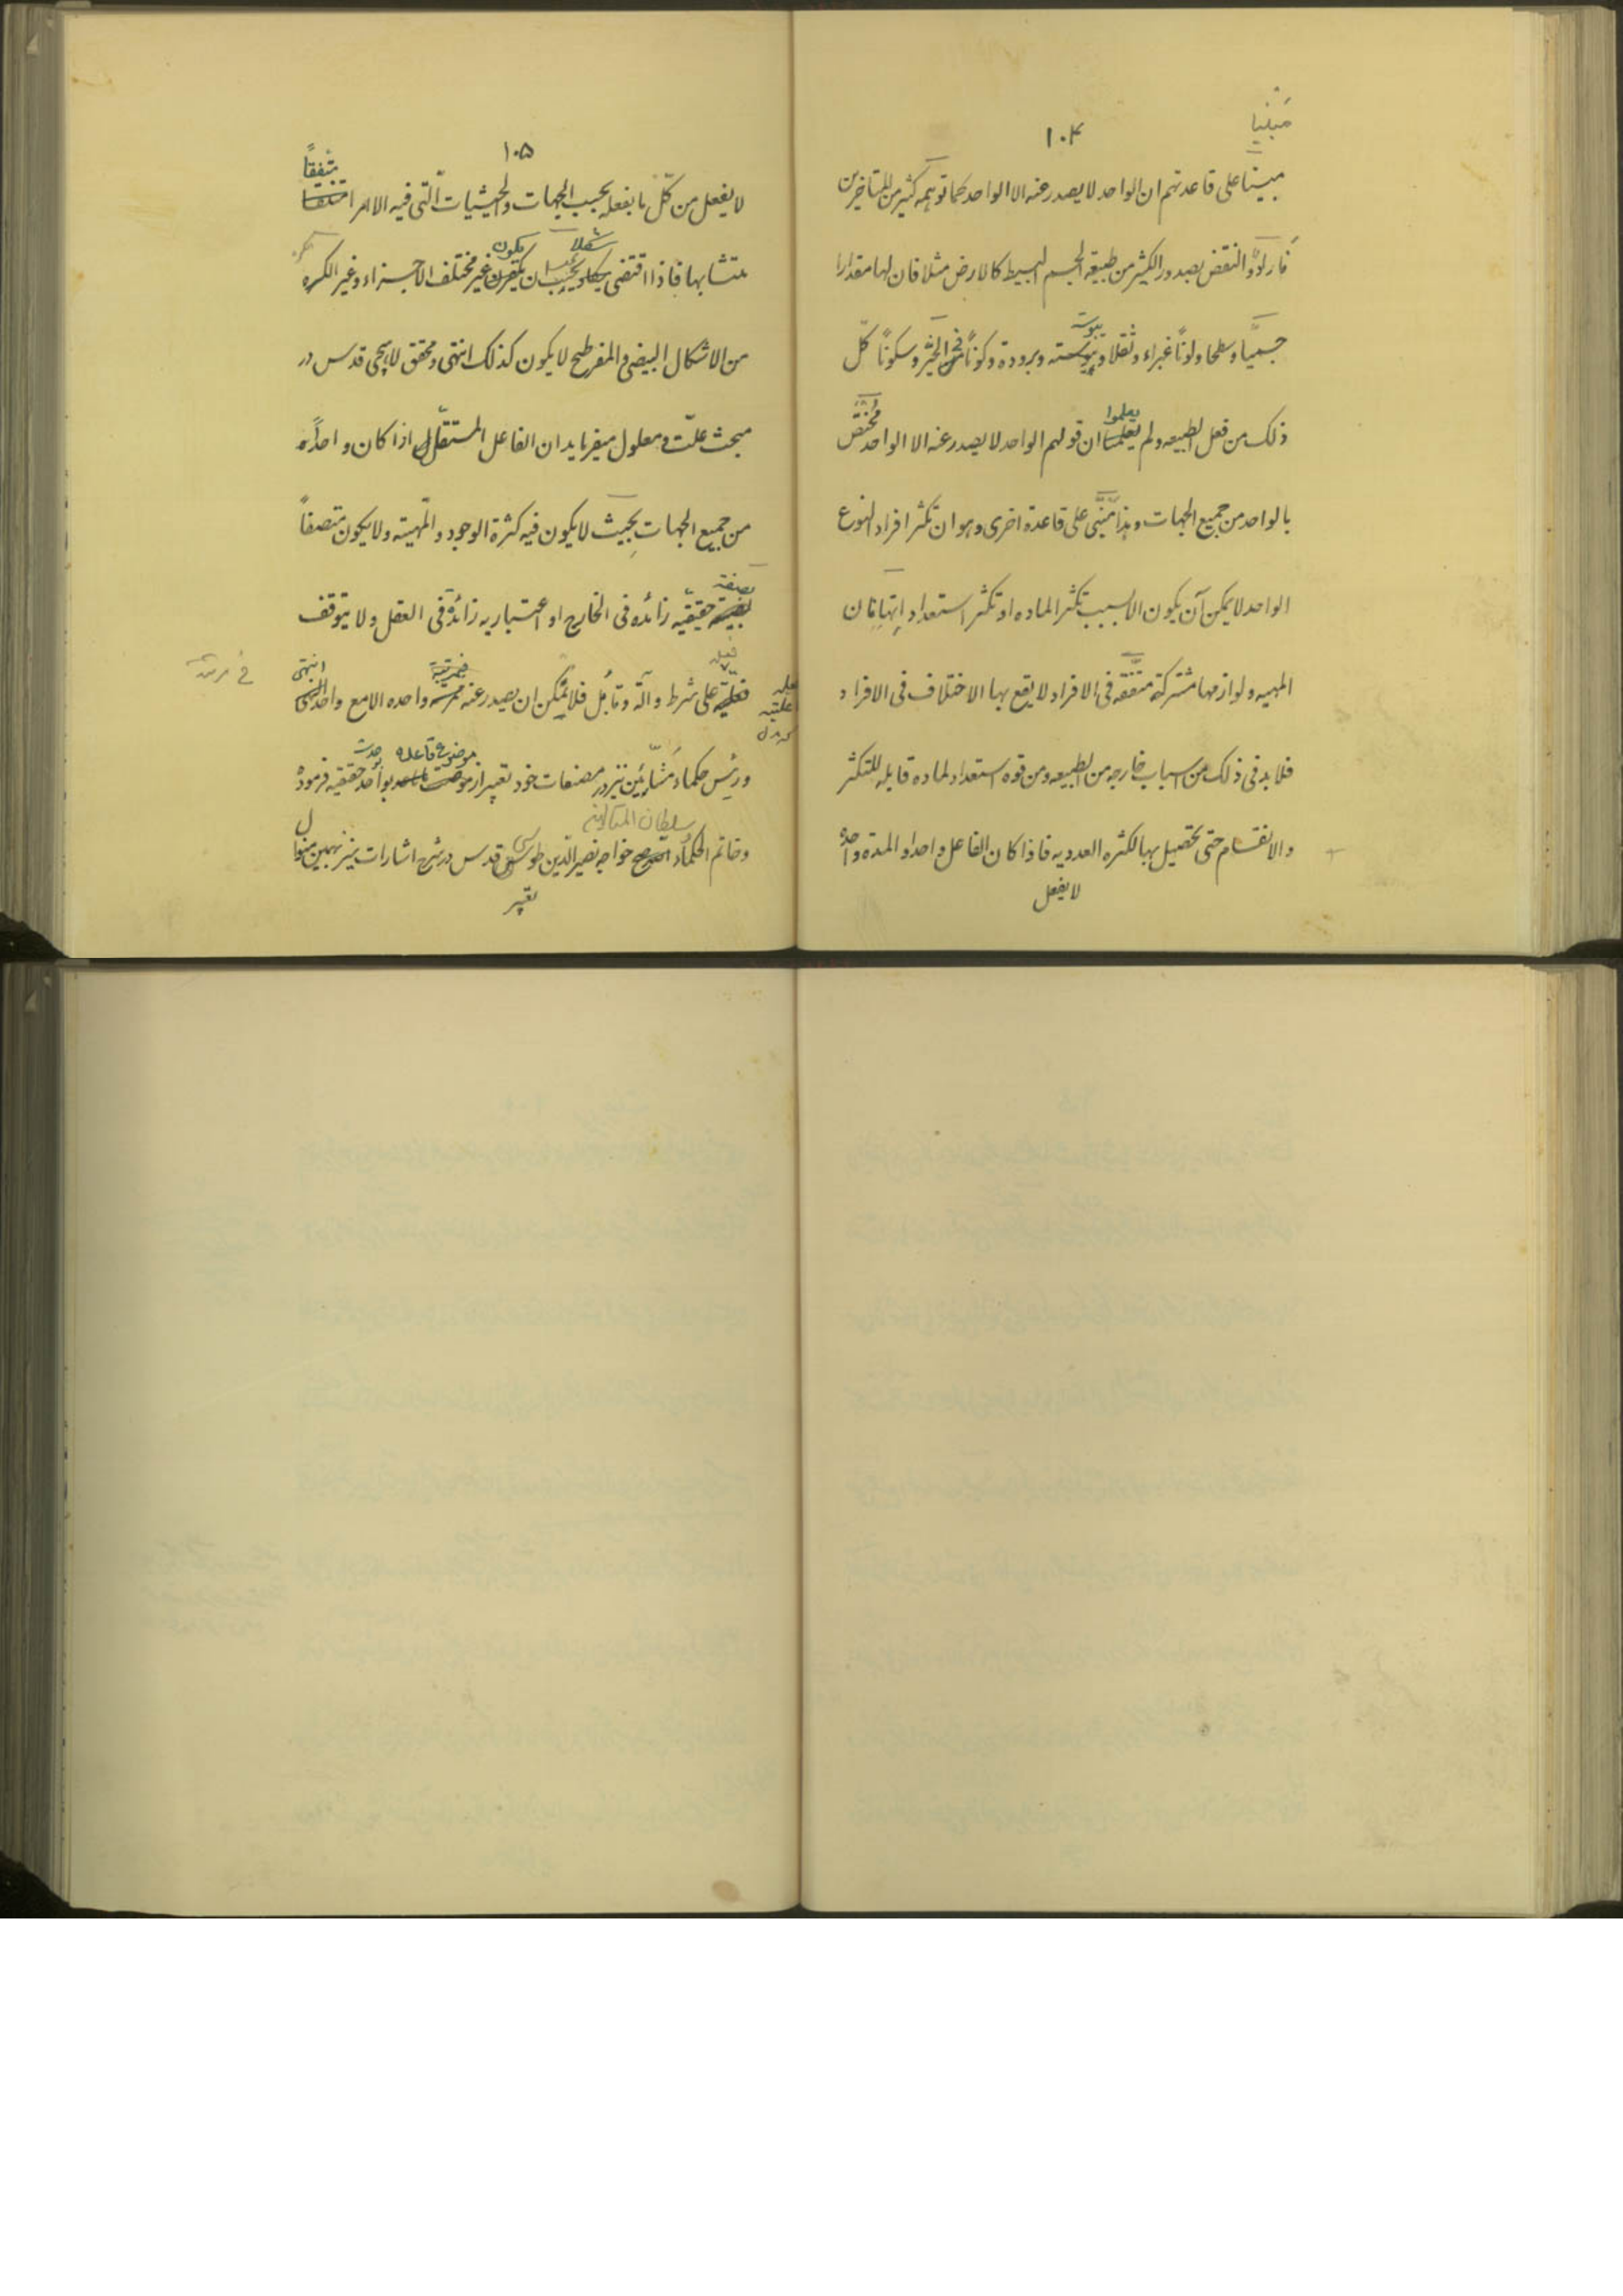 مَبنیا
١٠۴
مبیناً علی قاعدتهم ان الواحد لا یصدر عنه الا الواحد کما توهمه کثیر من المتاخرین
فارادوا النقض بصدور الکثیر من طبیعه الجسم البسیط کالارض مثلا فان لها مقدارا
جسمیاً و سطحا و لوناً غبراء و ثقلا و یبوسته و برودة و کوناً فی الحیّز و سکوناً کلّ
یبوسة
ذلک من فعل الطبیعه و لم یعلموا ان قولهم الواحد لا یصدر عنه الا الواحد مُختصّ
بالواحد من جمیع الجهات و هذا مَبنّی علی قاعدة اخری و هو ان تکثر افراد النوع
الواحد لا یمکن آن یکون الا بسبب تکثر الماده او تکثر استعداداتها فان
المهیه و لوازمها مشترکة متفقه فی الافراد لا یقع بها الاختلاف فی الافراد
فلا بد فی ذلک من اسباب خارجه من الطبیعه و من قوه استعداد لماده قابله للتکثر
و الانقسام حتی تحصیل بها الکثره العددیه فاذا کان الفاعل واحدا و المده واحدة
لا یفعل
١٠۵
متفقاً
لا یفعل من کلّ ما یفعله بحسب الجهات و الحیثیات الّتی فیه الا امرا
متشابها فاذا اقتضی شکلا یجب ان یکون غیر مختلف الاجزاء و غیر الکره
من الاشکال البیضی و المفرطح لا یکون کذلک انتهی و محقق لاهیجی قدس در
مبحث علّت و معلول میفرماید ان الفاعل المستقلّ اذا کان واحداً
من جمیع الجهات بحیث لا یکون فیه کثرة الوجود و المهیته و لا یکون متصفاً
بصفة حقیقیّه زائده فی الخارج او اعتباریه زائدة فی العقل و لا یتوقف
فعله علی شرط و آلة و قابُل فلا یُمکن ان یصدر عنه فی مرتبة واحده الا مع واحد انتهی
فی مرتبة
و رئیس حکماء مَشّائین نیز در مصنفات خود تعبیر از موضوع قاعده بواحد حقیقیه فرموده
سلطان المتالهین
و خاتم الحکماء خواجه نصیر الدّین طوسی قدس در شرح اشارات نیز بهمین منوال
تعبیر